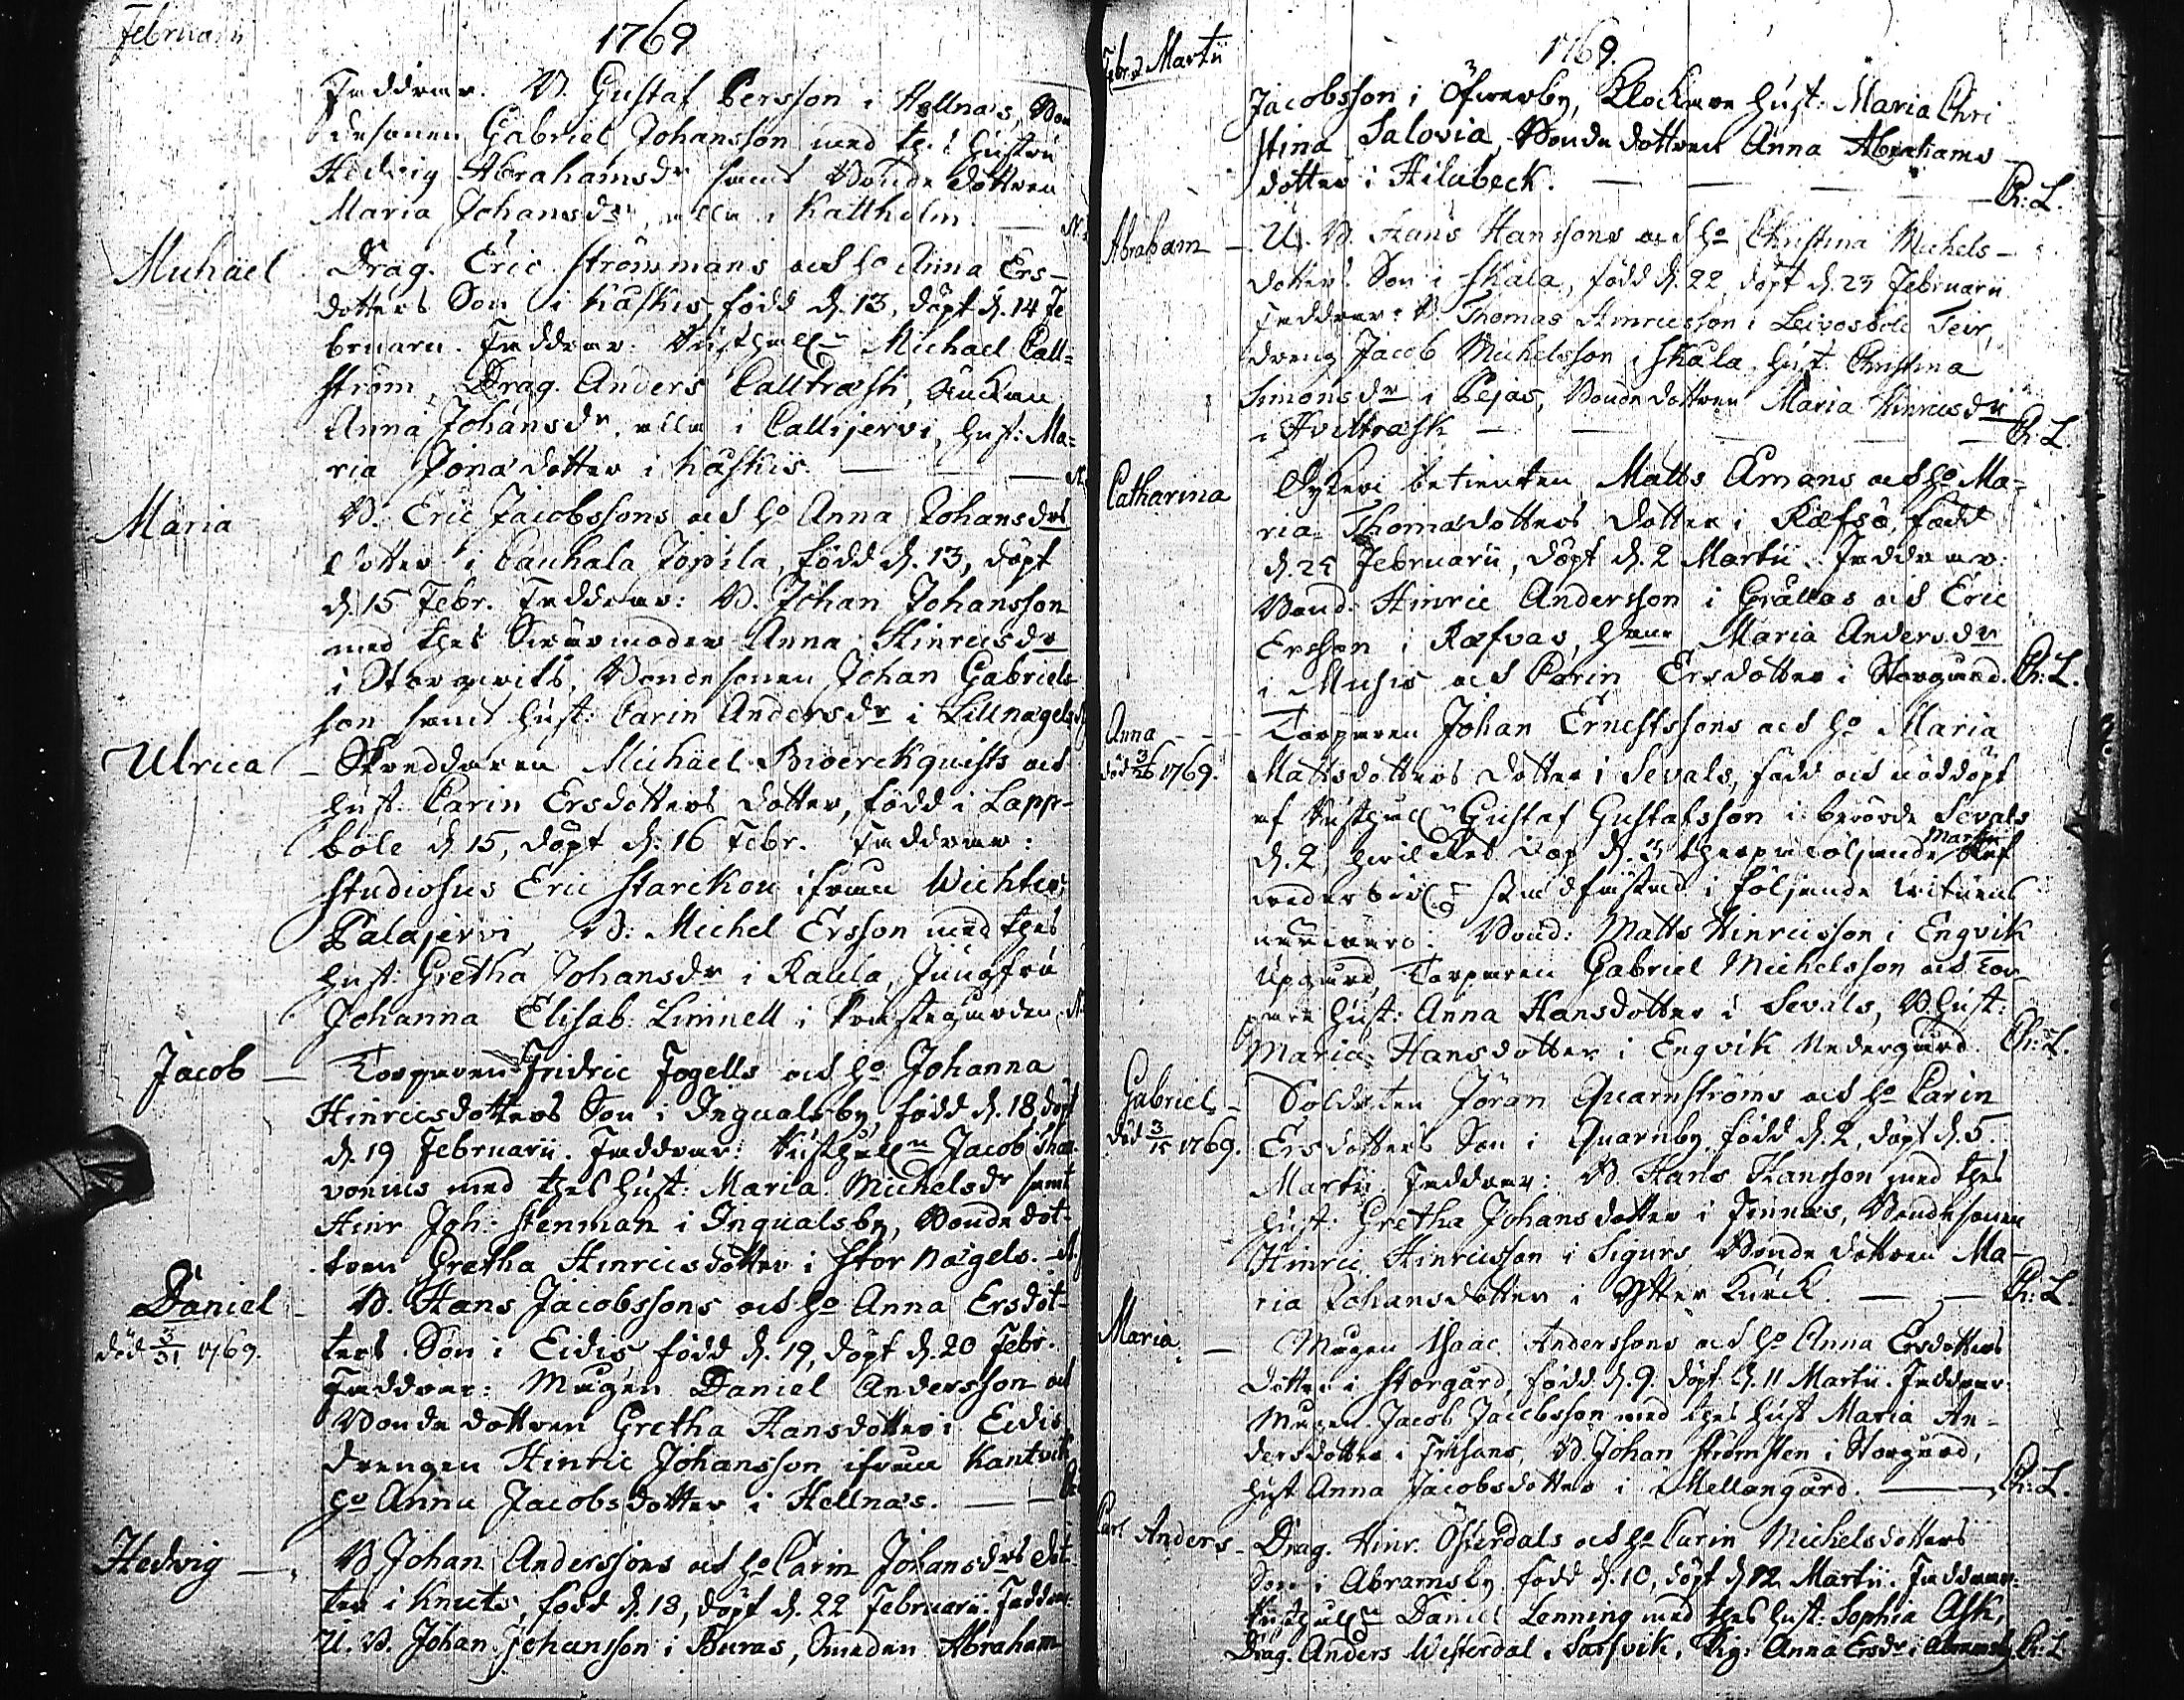 Februarii
1769
Faddrar. B. Gustaf Persson i Hellnäs, Bon
desonen Gabriel Johansson med th: hustru
Hedvig Abrahamsdr samt Bonde dottren
Maria Johansdr, alla i Kattholm.
Michäel
Drag. Eric Strömmans och ho Anna Ers-
dotters Son i Kåskis, född d. 13, döpt d. 14 Fe
bruarii. Faddrar: Michael Call-
ström, Drag. Anders Calltræsk, Enckan
Anna Johansdr, alla i Callijervi, hust: Ma-
ria Jonædotter i Kåskis.
Maria
B. Eric Jacobssons och ho Anna Johansdrs
dotter i Cauhala Jopila, född d. 13, döpt
d. 15 Febr. Faddrar: B. Johan Johansson
med thes Swärmoder Anna Hinricsdr
i Storgrifs, Bondesonen Johan Gabriels-
son samt hust: Carin Andersdr i Lillnægels
Ulrica
- Skreddaren Michäel Bioerckquists och
hust: Carin Ersdotters dotter, född i Lapp-
böle d. 15, döpt d. 16 Febr. Faddrar:
Studiosus Eric Starckou ifrån Wichtis,
Palajervi, B. Michel Ersson med thes
hust: Gretha Johansdr i Raula, Jungfru
Johanna Elisab: Limnell i Prestegården.
Jacob -
Torparen Fridric Fogells och ho Johanna
Hinricsdotters Son i Ingvalsby, född d. 18, döpt
d. 19 Februarii. Faddrar: Jacob
med thes hust: Maria Michelsdr samt
Hinr Joh: Stenman i Ingvalsby, Bonde dot-
tren Gretha Hinricsdotter i Stor Nägels.
Daniel -
död 3/31 1769.
B. Hans Jacobssons och ho Anna Ersdot-
ters Son i Eidis född d. 19, döpt d. 20 Febr.
Faddrar: Mågen Daniel Andersson och
Bonde dottren Gretha Hansdotter i Eidis
drengen Hinric Johansson ifrån Kantvik
ho Anna Jacobsdotter i Hellnäs.
Hedvig
B. Johan Anderssons och ho Carin Johansdrs dot-
ter i Knuts, född d. 18, döpt d. 22 Februarii. Faddrar
U. B. Johan Johansson i Buras, Smeden Abraham
Febr. & Martii
1769.
Jacobsson i Öfwerby, Klockare hust: Maria Chri
stina Salovia, Bonde dottren Anna Abrahams
dotter i Hilabeck. Ch: L.
Abraham -
U. B. Hans Hanssons och ho Christina Michels-
dotters Son i Skåla, född d. 22, döpt d. 23 Februarii
Faddrar: B. Thomas Hinricsson i Leivosböle Teir,
dreng Jacob Michelsson i Skåla, hust: Christina
Simonsdr i Pejas, Bonde dottren Maria Hinricsdr
i Hvittræsk Ch: L.
Catharina
betienten Matts Emans och ho Ma-
ria Thomædotters dotter i Ræfsö, född
d. 25 Februarii, döpt d. 2 Martii. Faddrar:
Bond. Hinric Andersson i Grållas och Eric
Ersson i Ræfvas, Maria Andersdr
i Musis och Carin Ersdotter i Storgård. Ch: L.
Anna
död 3/26 1769.
Torparen Johan Ernestssons och ho Maria
Mattsdotters dotter i Sevals, född och nöddöpt
af Gustaf Gustafsson i berörde Sevals
d. 2, hvilcket dop d. 3 therpå följande Martii
i följande witnens
närvaro: Bond: Matts Hinricsson i Engvik
Upgård, Torparen Gabriel Michelsson och Tor-
pare hust: Anna Hansdotter i Sevals, B. hust:
Maria Hansdotter i Engvik Nedergård. Ch: L.
Gabriel -
död 3/15 1769.
Soldaten Jöran Quarnströms och ho Carin
Ersdotters Son i Quarnby, född d. 2, döpt d. 5
Martii. Faddrar: B. Hans Hansson med thes
hust: Gretha Johansdotter i Finnäs, Bondesonen
Hinric Hinricsson i Sigurs, Bonde dottren Ma-
ria Johansdotter i Ytter Kurck. Ch: L.
Maria. -
Mågen Isaac Anderssons och ho Anna Ersdotters
dotter i Storgård, född d. 9. döpt d. 11 Martii. Faddrar
Mågen Jacob Jacobsson med thes hust Maria An-
dersdotter i Frisans, B. Johan Strömsten i Storgård,
hust Anna Jacobsdotter i Mellangård. Ch: L.
Carl Anders -
Drag. Hinr. Österdals och ho Carin Michelsdotters
Son i Abramsby född d. 10, döpt d. 12 Martii. Faddrar:
Daniel Lenning med thes hust: Sophia Ask,
Drag. Anders Westerdal i Sarfvik, Pig: Anna Ersdr i Abramsby. Ch: L